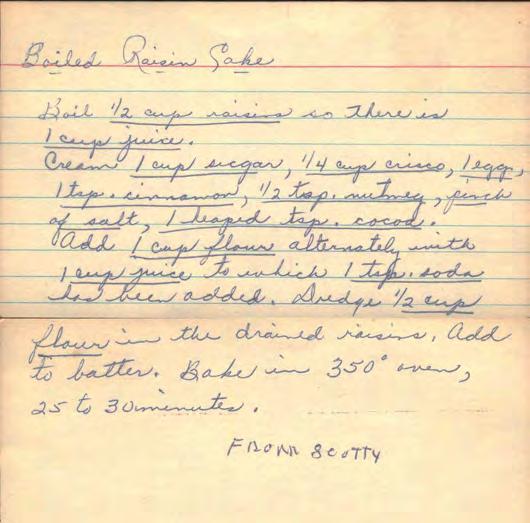 Boiled Raisin Cake
Boil 1/2 cup raisins so there is
1 cup juice.
Cream 1 cup sugar, 1/4 cup crisco, 1 egg,
1 tsp. cinnamon, 1/2 tsp. nutmeg, pinch
of salt, 1 heaped tsp. cocoa.
Add 1 cup flour alternately with
1 cup juice to which 1 tsp. soda
has been added. Dredge 1/2 cup
flour in the drained raisins. Add
to batter. Bake in 350° oven,
25 to 30 minutes.
FROM SCOTTY